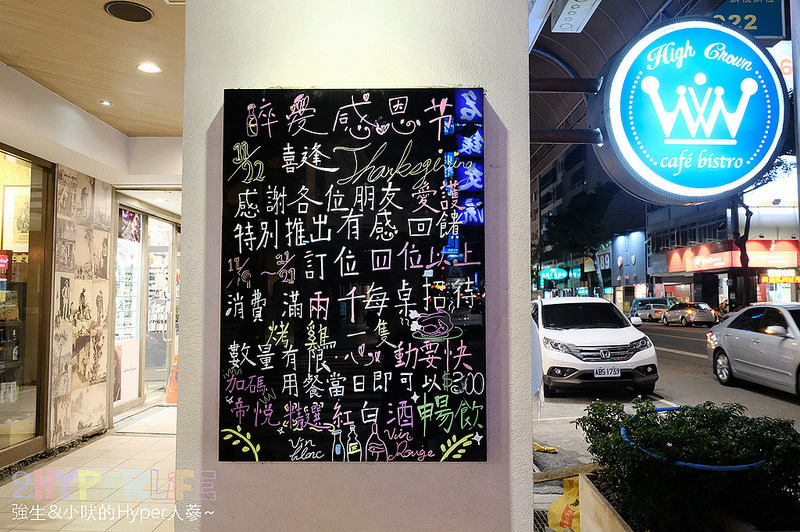 醉愛感恩节
11/22 喜逢 Thanksgiving
感謝各位朋友愛護
特別推出有感回饋
訂位四位以上
消費滿兩千每桌招待
烤雞一隻
數量有限 心動要快
加碼 用餐當日即可以$300
帝悅精選紅白酒暢飲
Vin blanc
Vin Rouge
High Crown
café bistro
22
ABS 1739
2HYPERLIFE
強生&小吠的Hyper人蔘~